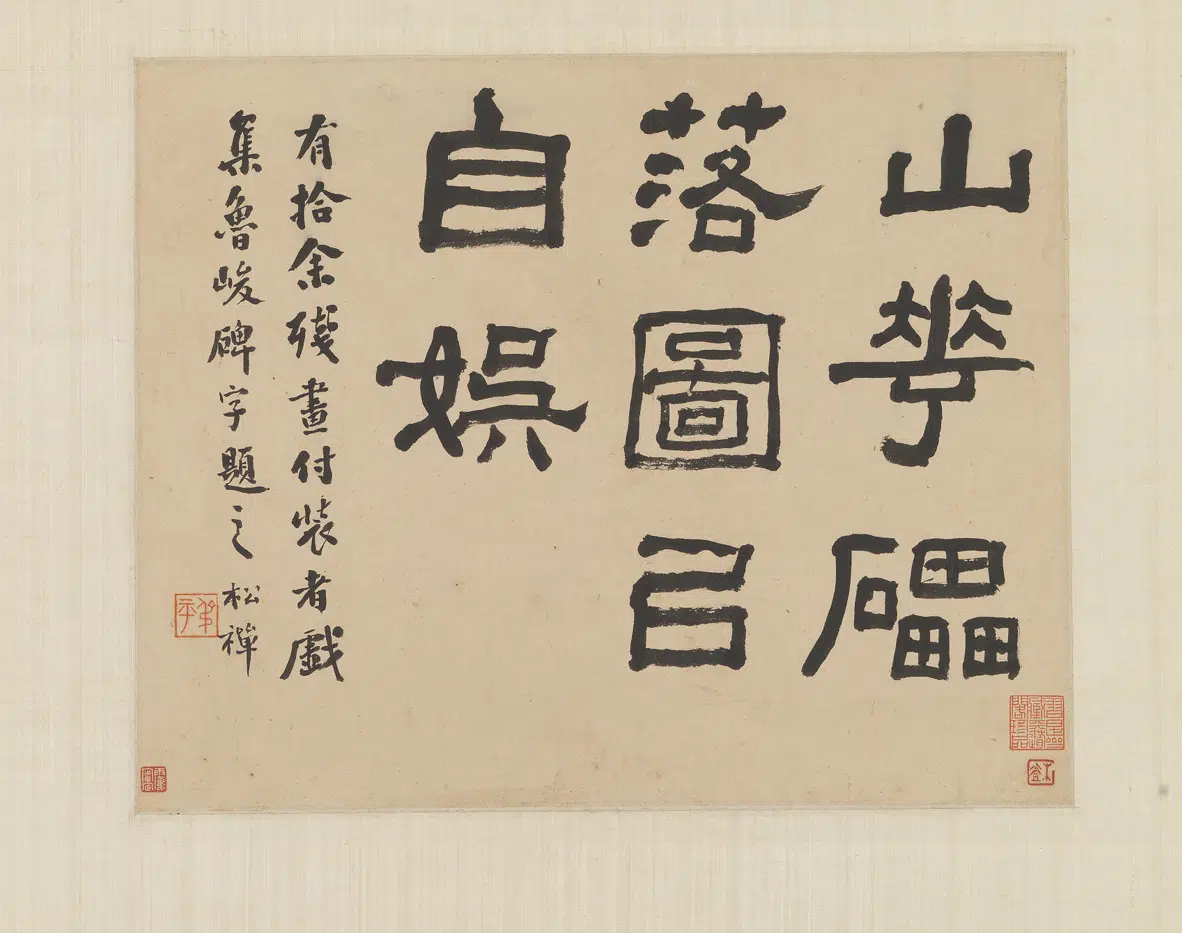 山華礧
落圖㠯
自娛
有拾余殘畫付裝者戲
集魯峻碑字題之 松禪
叔平